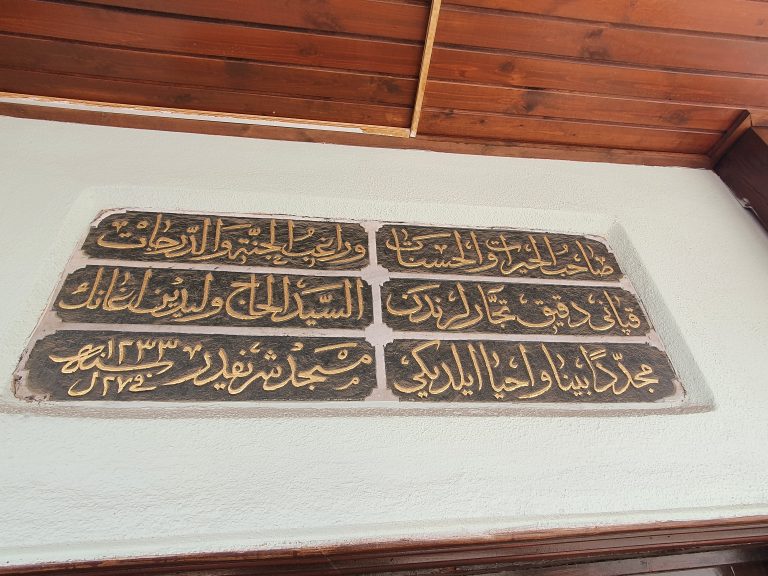 صاحب الخيرات والحسنات وراغب الجنّة والدّرجات
قپانى دقيق تجّارلرندن السّيد الحاج وليدين اغانك
مجدّداً بينا واحيا ايلديكى مسجد شريفيدر سنه ١٢٣٣